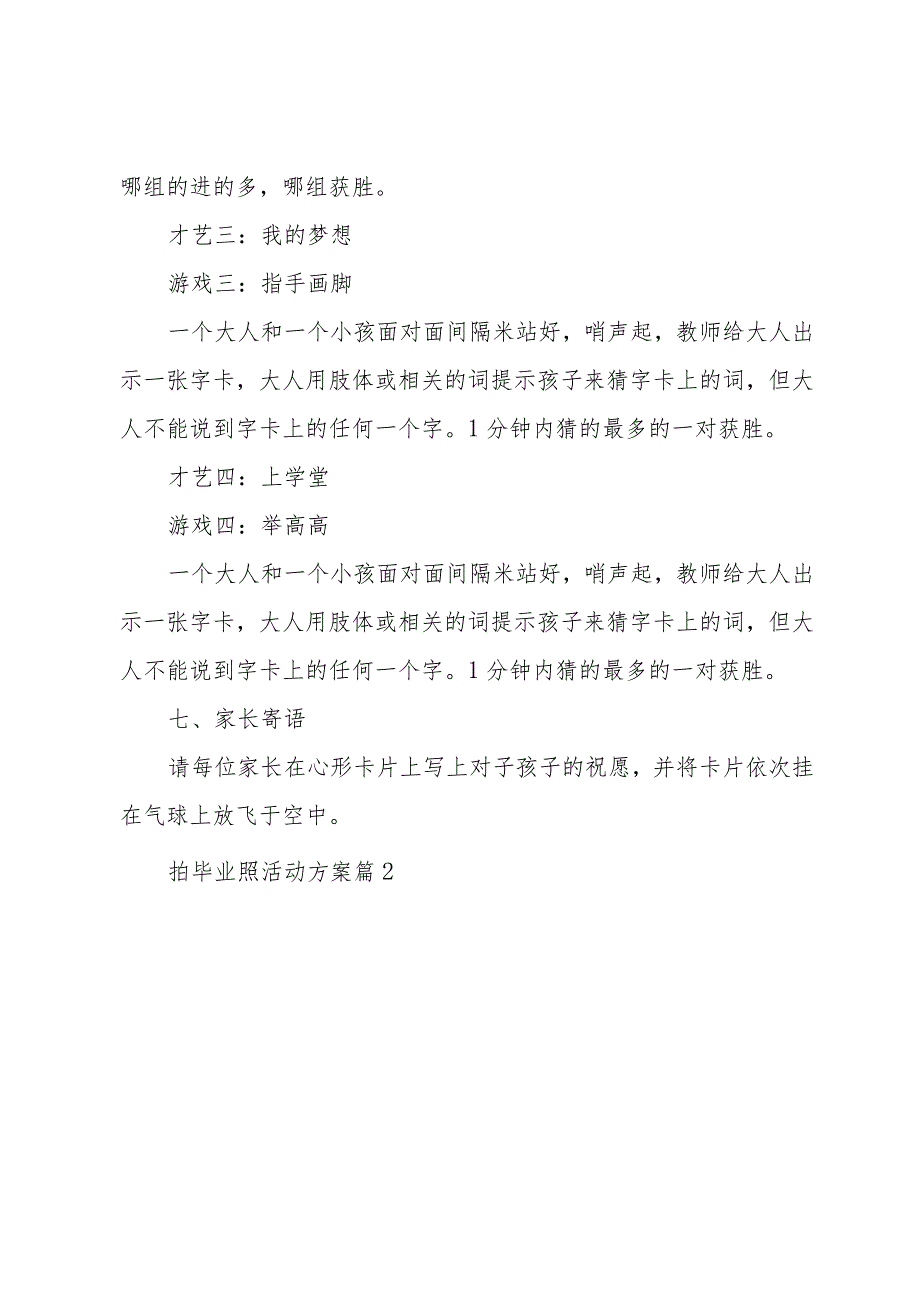 哪组的进的多，哪组获胜。
才艺三：我的梦想
游戏三：指手画脚
一个大人和一个小孩面对面间隔米站好，哨声起，教师给大人出
示一张字卡，大人用肢体或相关的词提示孩子来猜字卡上的词，但大
人不能说到字卡上的任何一个字。1 分钟内猜的最多的一对获胜。
才艺四：上学堂
游戏四：举高高
一个大人和一个小孩面对面间隔米站好，哨声起，教师给大人出
示一张字卡，大人用肢体或相关的词提示孩子来猜字卡上的词，但大
人不能说到字卡上的任何一个字。1 分钟内猜的最多的一对获胜。
七、家长寄语
请每位家长在心形卡片上写上对子孩子的祝愿，并将卡片依次挂
在气球上放飞于空中。
拍毕业照活动方案篇 2